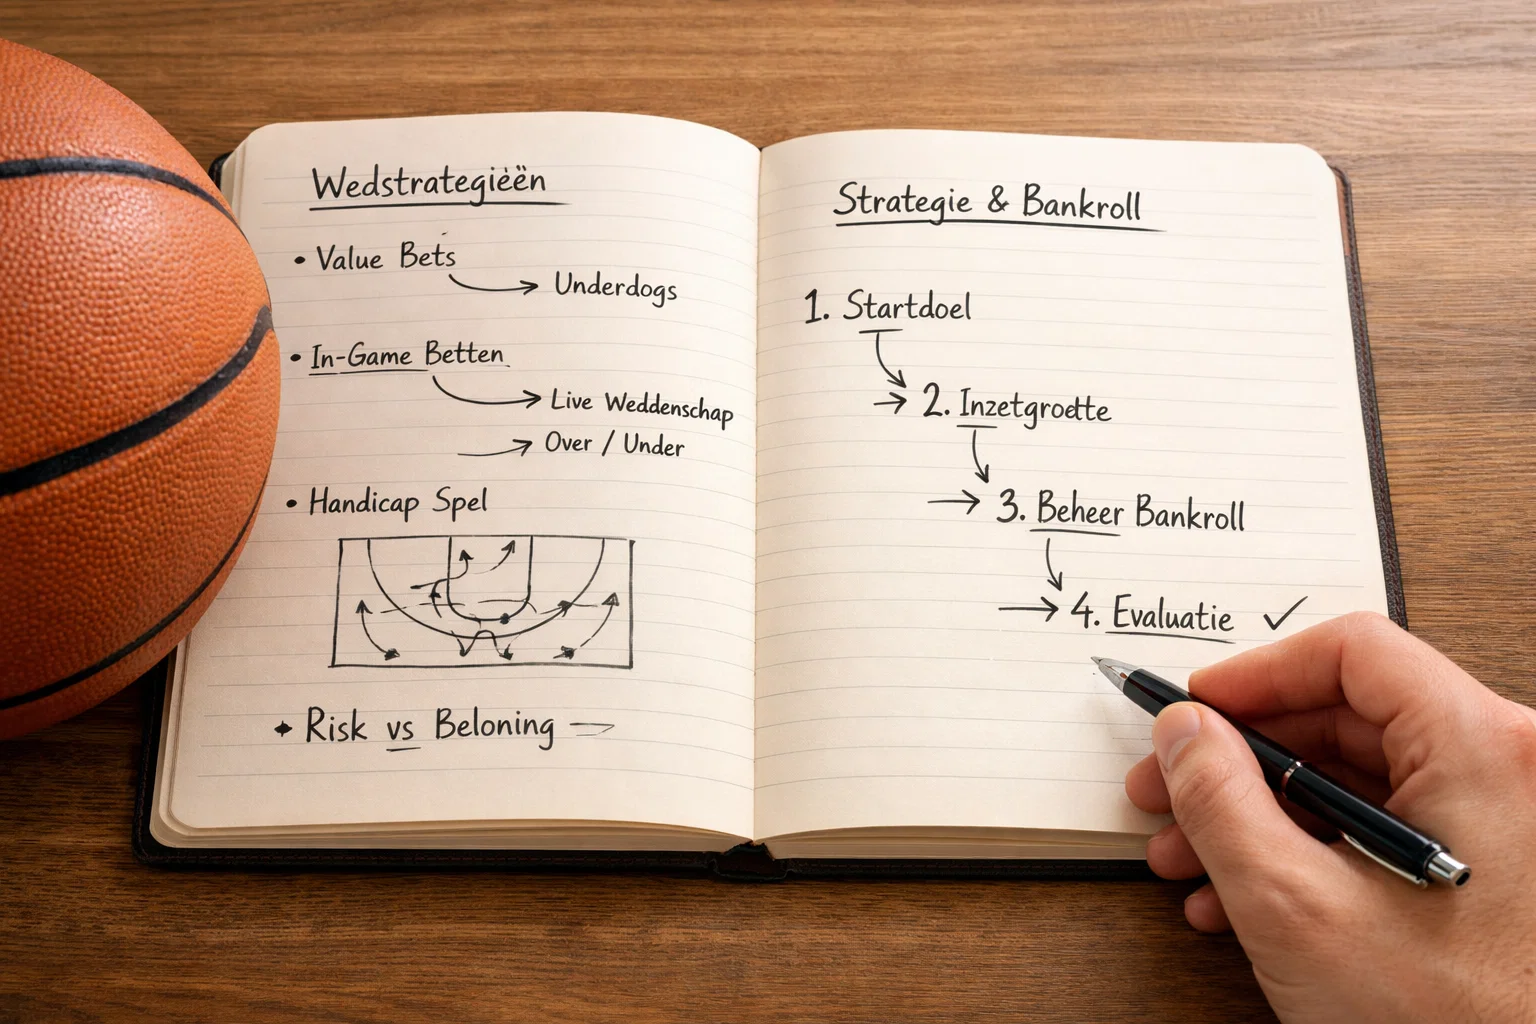 Wedstrategiëën
• Value Bets
Underdogs
• In-Game Betten
Live Weddenschap
Over / Under
• Handicap Spel
Risk vs Beloning
Strategie & Bankroll
1. Startdoel
2. Inzetgroette
3. Beheer Bankroll
4. Evaluatie ✓